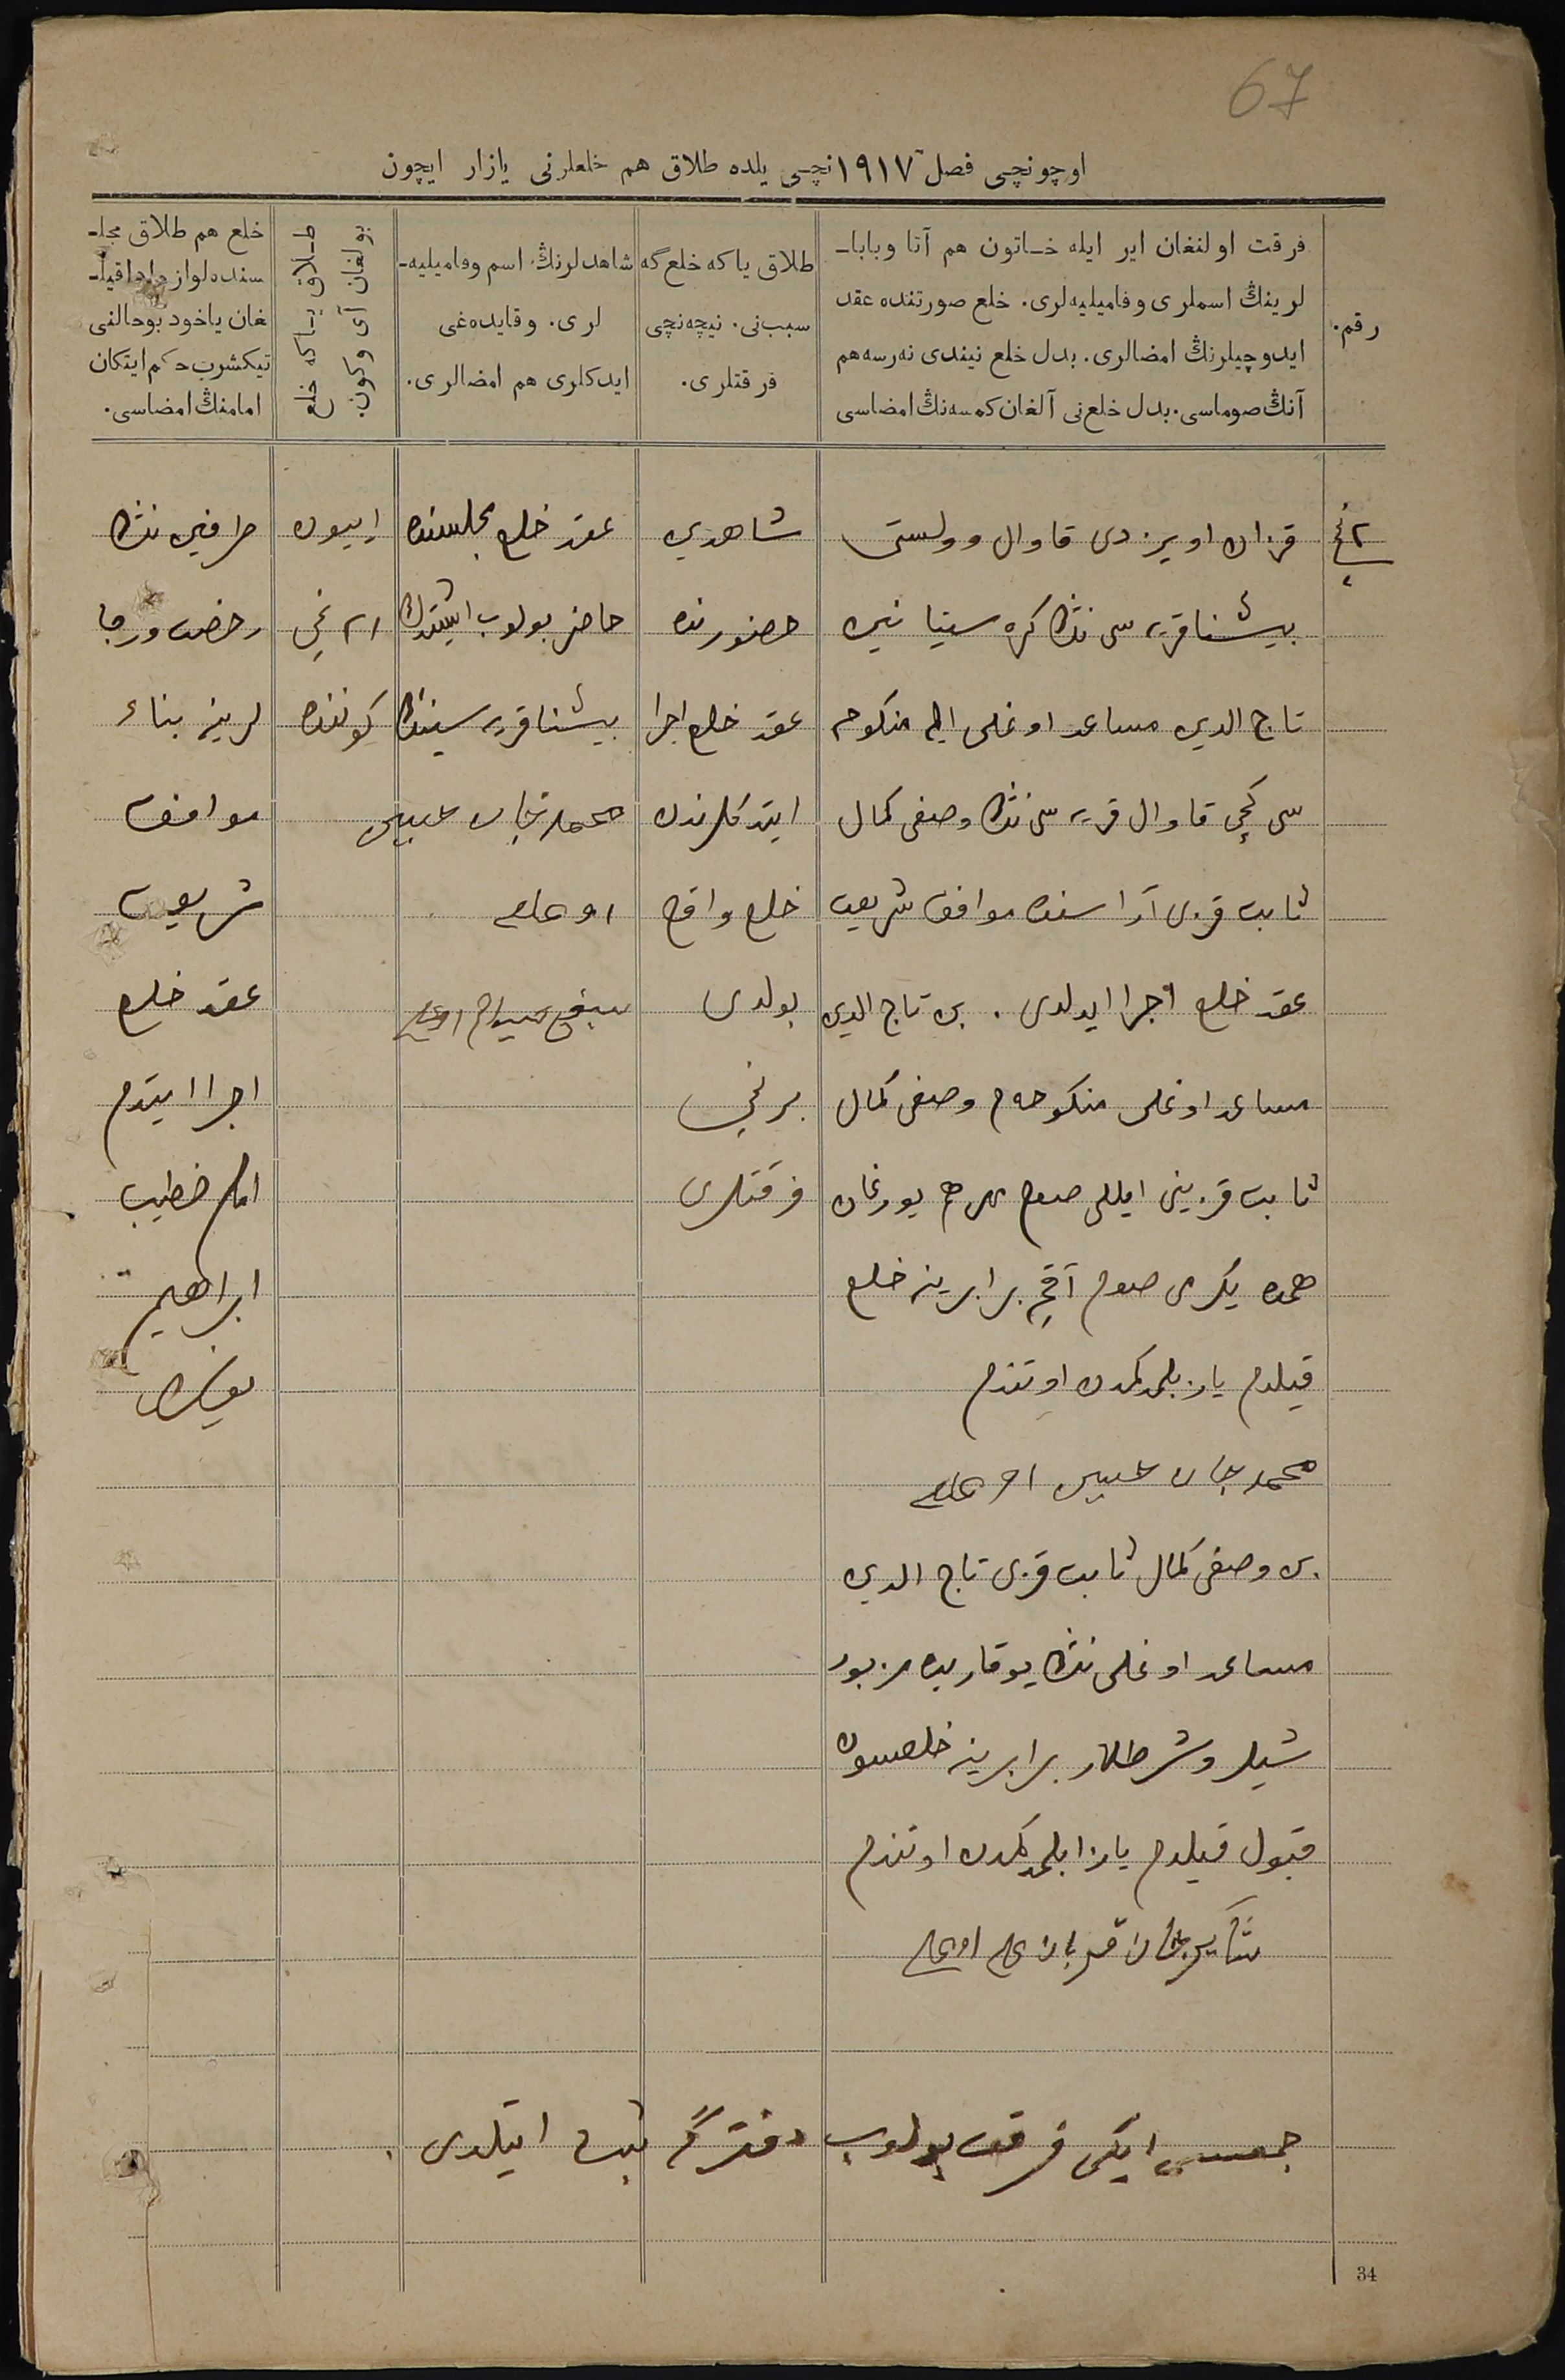 67
اوچونچی فصل ۱۹۱۷ نچی یلده طلاق هم خلعلرنی یازار ایچون
رقم.
فرقت اولنغان ایر ایله خـاتون هم آتا وبابا-
لرینڭ اسملری وفامیلیه‌لری. خلع صورتنده عقد
ایدوچیلرنڭ امضالری. بدل خلع نیندی نه‌رسه هم
آنڭ صوماسی. بدل خلع‌نی آلغان کمسه‌نڭ امضاسی
طلاق یاکه خلع‌گه
سبب‌نی. نیچه‌نچی
فرقتلری.
شاهدلرنڭ اسم وفامیلیه-
لری. وقایده‌غی
ایدکلری هم امضالری.
طـلاق یـاکه خلع
بولغان آی وکون.
خلع هم طلاق مجلـ-
سنده لوازم ادا قیلـ-
غان یاخود بوحالنی
تیکشرب حکم ایتکان
امامنڭ امضاسی.
۲ نچی
قزان اویزدی قاوال وولستی
بیشنا قریه سی نڭ کره ستیانین
تاج الدین مساعد اوغلی ایله منکوحه
سی کچی قاوال قریه سی نڭ وصفی کمال
ثابت قزی آراسنده موافق شریعت
عقد خلع اجرا ایدلدی. بن تاج الدین
مساعد اوغلی منکوحه‌م وصفی کمال
ثابت قزینی ایللی صوم مهر هم یورغان
همده یکرمی صوم آقچه برابرینه خلع
قیلدم یازا بلمدکمدن اوتندم
محمدجان
بن وصفی کمال ثابت قزی تاج الدین
مساعد اوغلی نڭ یوقاریده مزبور
شیلر وشرطلار برابرینه خلعسون
قبول قیلدم یازا بلمدکمدن اوتندم
شاهدین
حضورنده
عقد خلع اجرا
ایتدکلرندن
خلع واقع
بولدی
برنچی
فرقتلری
عقد خلع مجلسنده
حاضر بولوب ایشتدك
بیشنا قریه سیننڭ
محمدجان
اییون
۲۱ نچی
کوننده
طرفین نڭ
رخصت ورجا
لرینه بناء
موافق
شریعت
عقد خلع
اجرا ایتدم
امام خطیب
ابراهیم
جمعسی ایکی فرقت بولوب دفترگه ثبت ایتلدی.
34